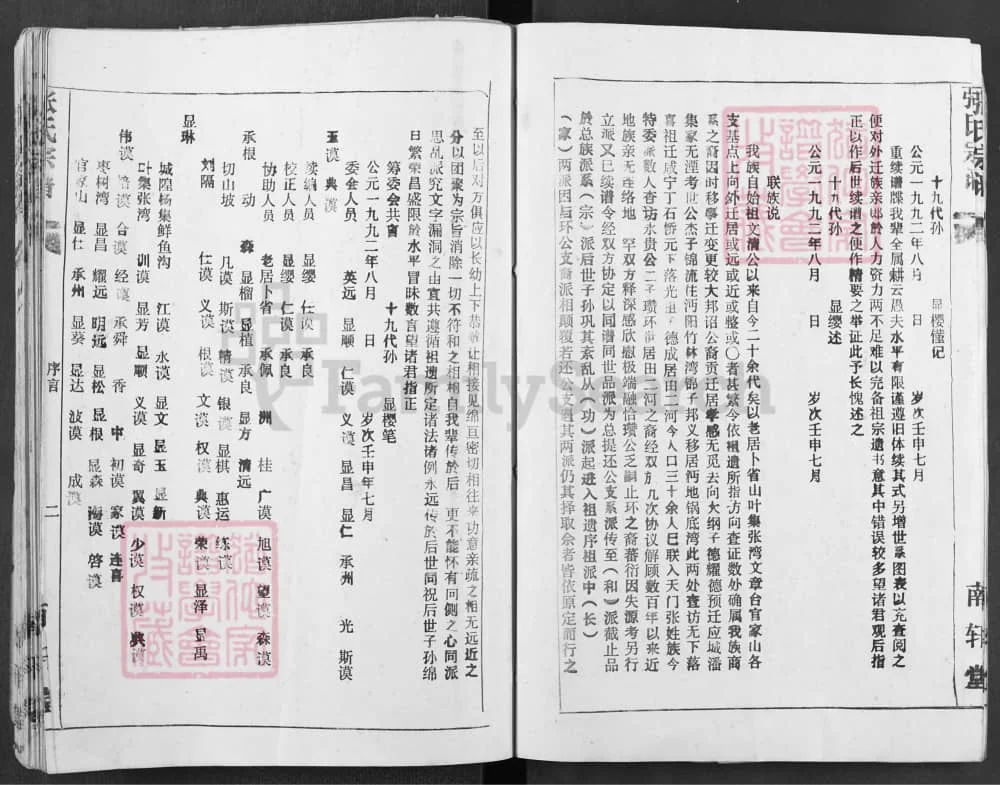 张氏宗谱
南轩堂
十九代孙 显樱懂记
公元一九九二年八月 日 岁次壬申七月
重续谱牒我辈全属耕云愚夫水平有限谨遵旧体续其式另增世系图表以充查阅之
便对外迁族亲邮於人力资力两不足难以完备祖宗遗书意其中错误较多望诸君观后指
正以作后世续谱之便作精要之举证此予长愧述之
十九代孙 显缨述
公元一九九二年八月 日 岁次壬申七月
联族说
我族自始祖文清公以来自今二十余代矣以老居卜省山叶集张湾文章台官家山各
支基点上向外迁居或远或近或整或〇者甚繁今依祖遗所指方向查证数处确属我族裔
系之裔因时移事迁变更较大邦诏公裔贡迁居孝感无觅去向大纲子德耀德预迁应城潘
集家无湮考世公杰子锦流住沔阳竹林湾锦子邦义移居沔地锅底湾此两处查访无下落
喜祖迁咸宁丁石桥元下落光祖子德成居田三河今人口三十余人已联入天门张姓族今
特委派数人查访永贵公二子瓒环俱居田二河之裔经双方几次协议解顾数百年以来近
地族亲无连络地 罕双方释深感欣慰极端融洽瓒公之嗣止环之裔蕃衍因失源考另行
立派又已续谱令经双方协定以同谱同世品派为总提还公支系派传至（和）派截止品
於总族派系（宗）派后世子孙巩其紊乱从（功）派起进入祖遗序祖派中（长）
（家）两派因与环公支裔派相颠覆若还公支遇其两派仍其择取余者皆依原定而行之
至以后对方俱应以长幼上下恭敬让相接见维亘密切相往来功意亲疏之相无远近之
分以团聚为宗旨消除一切不符和之相棉自我辈传於后 更不能怀有问侧之心同派
思乱派究文字漏洞之由寘共遵循祖遗所定诸法诸例永远传於后世同祝后世子孙绵
日繁荣昌盛限於水平冒昧数言望诸君指正
十九代孙 显樱笔
公元一九九二年八月 日 岁次壬申年七月
筹委会共言
委会人员 英远 显顺 仁谟 义谟 显昌 显仁 承州 光 斯谟
玉谟 典谟
续编人员 显缨 仕谟 承良
校正人员 显缨 仁谟 承良
协助人员 老居卜省 承佩 洲 桂 广谟 旭谟 望谟 森谟
承根 动 森 显榴 显植 显方 清远
切山坡 几谟 斯谟 精谟 银谟 显棋 惠运 练谟
刘隔 仕谟 义谟 根谟 文谟 权谟 典谟 荣谟 显泽 显禹
显琳
城隍杨集鲜鱼沟 江谟 水谟 显文 显玉 显新
叶集张湾 训谟 显芳 显顺 义谟 显奇 翼谟 少谟 权谟 典谟
伟谟 谙谟 合谟 经谟 承舜 香 中 初谟 家谟 连喜
枣树湾 显昌 耀远 明远 显松 显根 显森 海谟 启谟
官家山 显仕 承州 显葵 显达 波谟 成谟
序言
二
FamilySearch